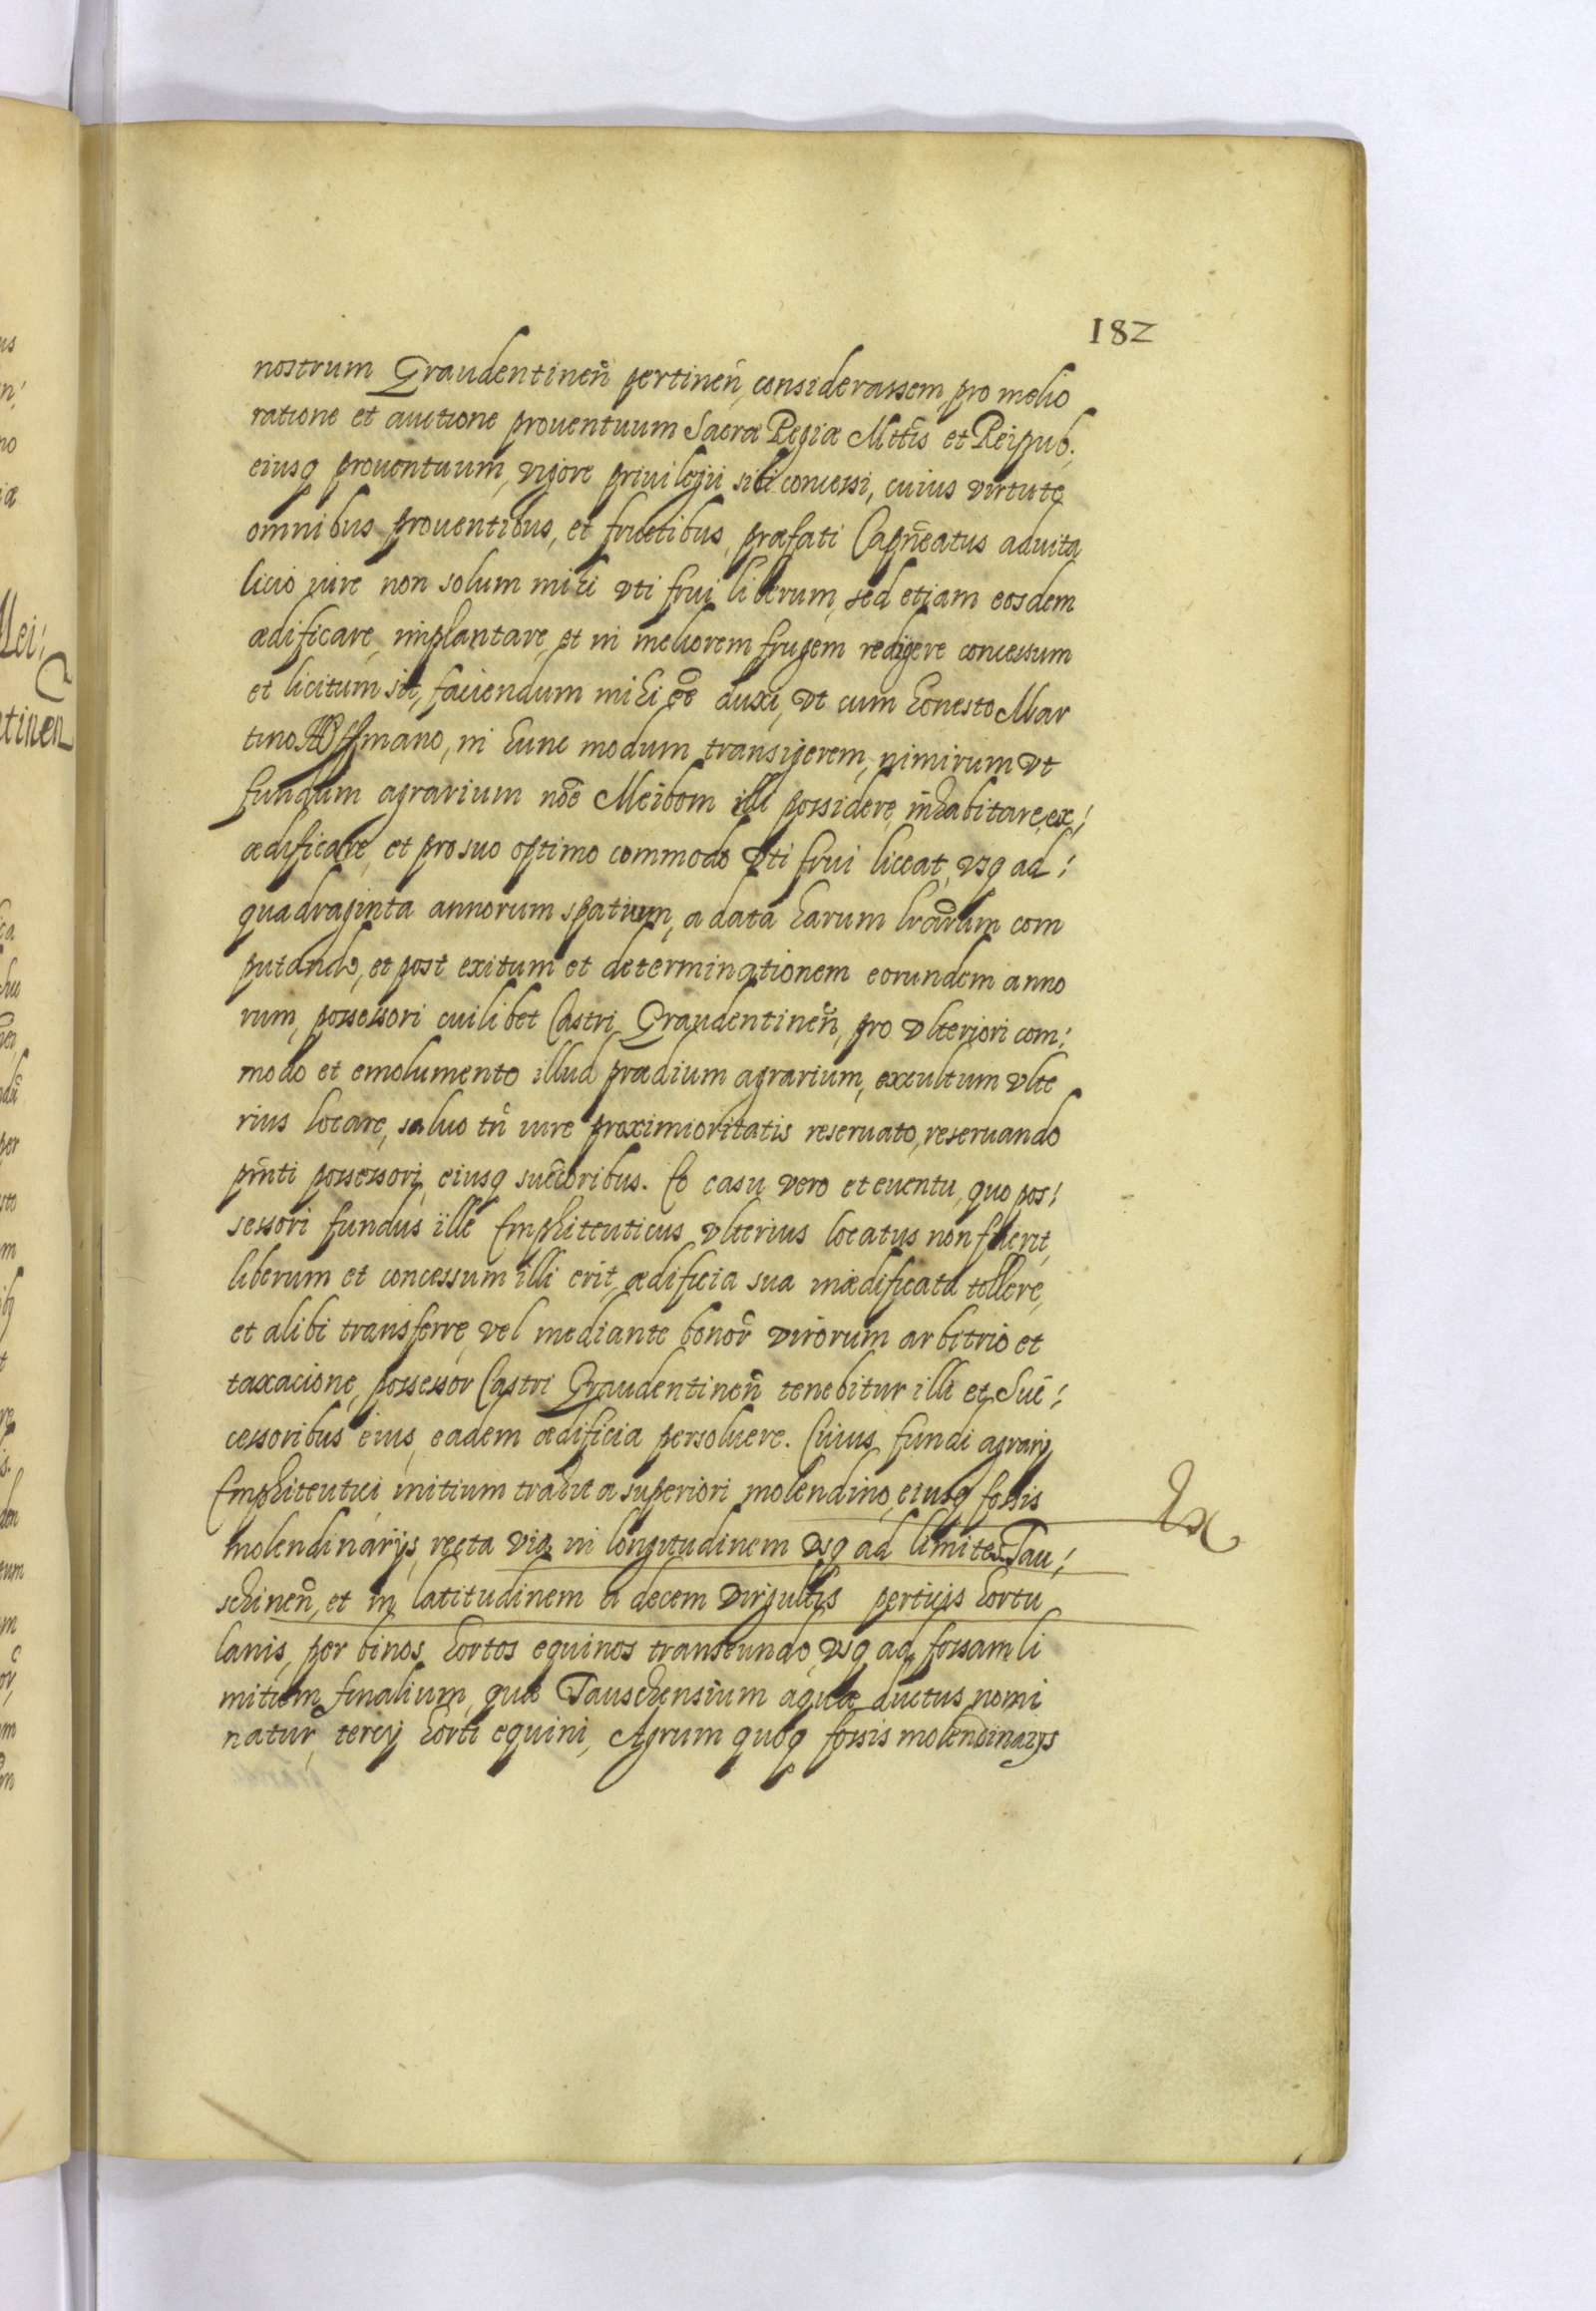 182
nostrum Graudentineñ pertineñ, considerassem, pro melio
ratione et auctione prouentuum Sacræ Regiæ Mttis et Reipub.
eiusq prouentuum, vigore priuilegii sibi concessi, cuius virtute
omnibus prouentibus, et fructibus, præfati Capneatus aduita
licio iure non solum mihi vti frui liberum, sed etiam eosdem
ædificare, implantare, et in meliorem frugem redigere concessum
et licitum sit, faciendum mihi ēē duxi, vt cum honesto Mar
tino in hunc modum transigerem, nimirum vt
fundum agrarium noē Meibom illi possidere, inhabitare, ex:
ædificare, et pro suo optimo commodo vti frui liceat, vsq ad:
quadraginta annorum spatium, a data harum lrārum com
putando, et post exitum et determinationem eorundem anno
rum, possessori cuilibet Castri Graudentineñ, pro vlteriori com:
modo et emolumento illud prædium agrarium, excultum vlte
rius locare, saluo tñ iure proximioritatis reseruato, reseruando
pñti possessori, eiusq sucēoribus. Eo casu vero et euentu, quo pos:
sessori fundus ille Emphiteuticus vlterius locatus non fuerit,
liberum et concessum illi erit, ædificia sua inædificata tollere,
et alibi transferre, vel mediante bonor̄ virorum arbitrio et
taxacione, possessor Castri Graudentineñ tenebitur illi et Suc:
cessoribus eius, eadem ædificia persoluere. Cuius fundi agrarij
Emphiteutici initium trahit a superiori molendino, eiusq fossis
molendinarijs, recta via in longitudinem vsq ad limites Tau:
schineñ, et in latitudinem a decem virgultis perticis hortu
lanis, per binos hortos equinos transeundo, vsq ad fossam li
mitum finalium, quæ Tauschensium aquæ ductus nomi
natur, tercij horti equini, Agrum quoq fossis molendinarijs